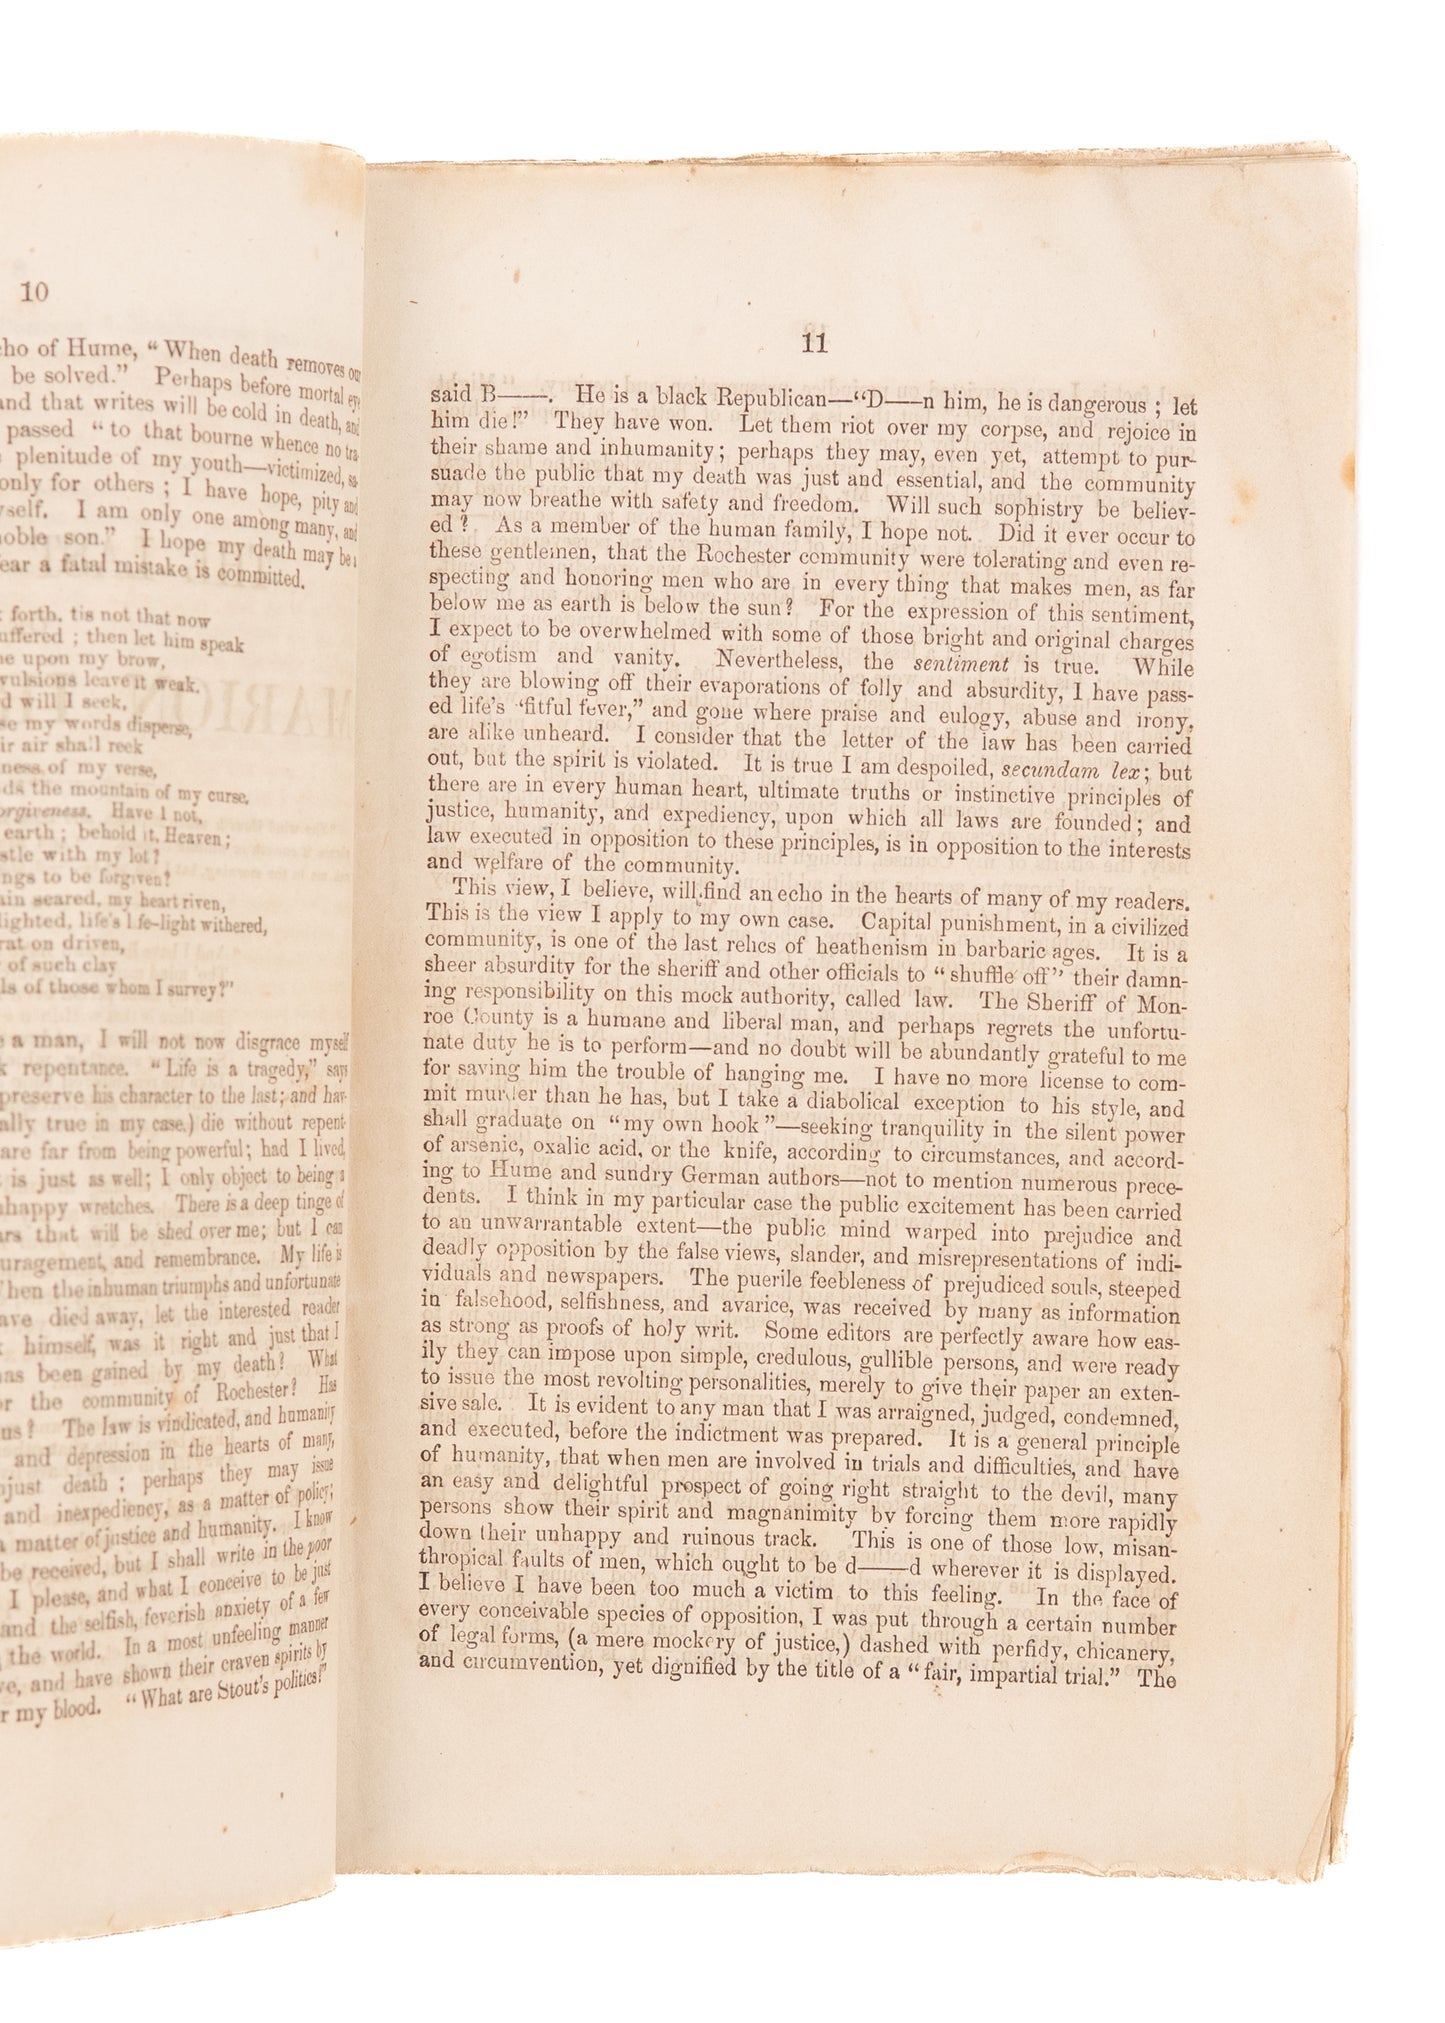 10
cho of Hume, “When death removes our
be solved.” Perhaps before mortal eye
and that writes will be cold in death, and
passed “to that bourne whence no tra-
plenitude of my youth—victimized, sa-
only for others ; I have hope, pity and
yself. I am only one among many, and
noble son.” I hope my death may be a
ear a fatal mistake is committed.
forth, tis not that now
uffered ; then let him speak
upon my brow,
vulsions leave it weak.
will I seek,
se my words disperse,
air shall reek
ness of my verse,
ds the mountain of my curse.
orgiveness. Have I not,
earth ; behold it, Heaven ;
stle with my lot?
ngs to be forgiven?
ain seared, my heart riven,
lighted, life's life-light withered,
rat on driven,
of such clay
ls of those whom I survey?”
a man, I will not now disgrace myself
repentance. “Life is a tragedy,” says
preserve his character to the last; and hav-
ally true in my case,) die without repent-
are far from being powerful; had I lived,
is just as well; I only object to being a
nhappy wretches. There is a deep tinge of
ars that will be shed over me; but I can
uragement, and remembrance. My life is
When the inhuman triumphs and unfortunate
ave died away, let the interested reader
himself, was it right and just that I
has been gained by my death? What
or the community of Rochester? Has
us? The law is vindicated, and humanity
and depression in the hearts of many,
njust death ; perhaps they may issue
and inexpediency, as a matter of policy;
a matter of justice and humanity. I know
be received, but I shall write in the poor
I please, and what I conceive to be just
and the selfish, feverish anxiety of a few
the world. In a most unfeeling manner
ve, and have shown their craven spirits by
r my blood. “What are Stout's politics?”
11
said B——. He is a black Republican—“D——n him, he is dangerous ; let
him die!” They have won. Let them riot over my corpse, and rejoice in
their shame and inhumanity; perhaps they may, even yet, attempt to per-
suade the public that my death was just and essential, and the community
may now breathe with safety and freedom. Will such sophistry be believ-
ed? As a member of the human family, I hope not. Did it ever occur to
these gentlemen, that the Rochester community were tolerating and even re-
specting and honoring men who are in every thing that makes men, as far
below me as earth is below the sun? For the expression of this sentiment,
I expect to be overwhelmed with some of those bright and original charges
of egotism and vanity. Nevertheless, the sentiment is true. While
they are blowing off their evaporations of folly and absurdity, I have pass-
ed life's “fitful fever,” and gone where praise and eulogy, abuse and irony,
are alike unheard. I consider that the letter of the law has been carried
out, but the spirit is violated. It is true I am despoiled, secundam lex; but
there are in every human heart, ultimate truths or instinctive principles of
justice, humanity, and expediency, upon which all laws are founded; and
law executed in opposition to these principles, is in opposition to the interests
and welfare of the community.
This view, I believe, will find an echo in the hearts of many of my readers.
This is the view I apply to my own case. Capital punishment, in a civilized
community, is one of the last relics of heathenism in barbaric ages. It is a
sheer absurdity for the sheriff and other officials to “shuffle off” their damn-
ing responsibility on this mock authority, called law. The Sheriff of Mon-
roe County is a humane and liberal man, and perhaps regrets the unfortu-
nate duty he is to perform—and no doubt will be abundantly grateful to me
for saving him the trouble of hanging me. I have no more license to com-
mit murder than he has, but I take a diabolical exception to his style, and
shall graduate on “my own hook”—seeking tranquility in the silent power
of arsenic, oxalic acid, or the knife, according to circumstances, and accord-
ing to Hume and sundry German authors—not to mention numerous prece-
dents. I think in my particular case the public excitement has been carried
to an unwarrantable extent—the public mind warped into prejudice and
deadly opposition by the false views, slander, and misrepresentations of indi-
viduals and newspapers. The puerile feebleness of prejudiced souls, steeped
in falsehood, selfishness, and avarice, was received by many as information
as strong as proofs of holy writ. Some editors are perfectly aware how eas-
ily they can impose upon simple, credulous, gullible persons, and were ready
to issue the most revolting personalities, merely to give their paper an exten-
sive sale. It is evident to any man that I was arraigned, judged, condemned,
and executed, before the indictment was prepared. It is a general principle
of humanity, that when men are involved in trials and difficulties, and have
an easy and delightful prospect of going right straight to the devil, many
persons show their spirit and magnanimity by forcing them more rapidly
down their unhappy and ruinous track. This is one of those low, misan-
thropical faults of men, which ought to be d——d wherever it is displayed.
I believe I have been too much a victim to this feeling. In the face of
every conceivable species of opposition, I was put through a certain number
of legal forms, (a mere mockery of justice,) dashed with perfidy, chicanery,
and circumvention, yet dignified by the title of a “fair, impartial trial.” The